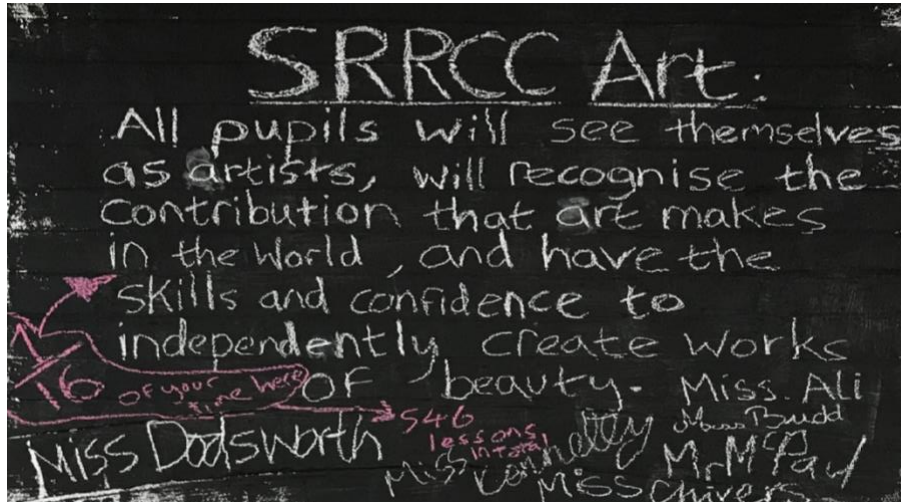 SRRCC Art.
All pupils will see themselves
as artists, will recognise the
contribution that art makes
in the World, and have the
skills and confidence to
independently create works
of beauty.
1/16 of your
time here!
546
lessons
in total
Miss. Ali
Miss Budd
Miss Dodsworth
Miss Connolly
Mr McPaul
Miss Chivers